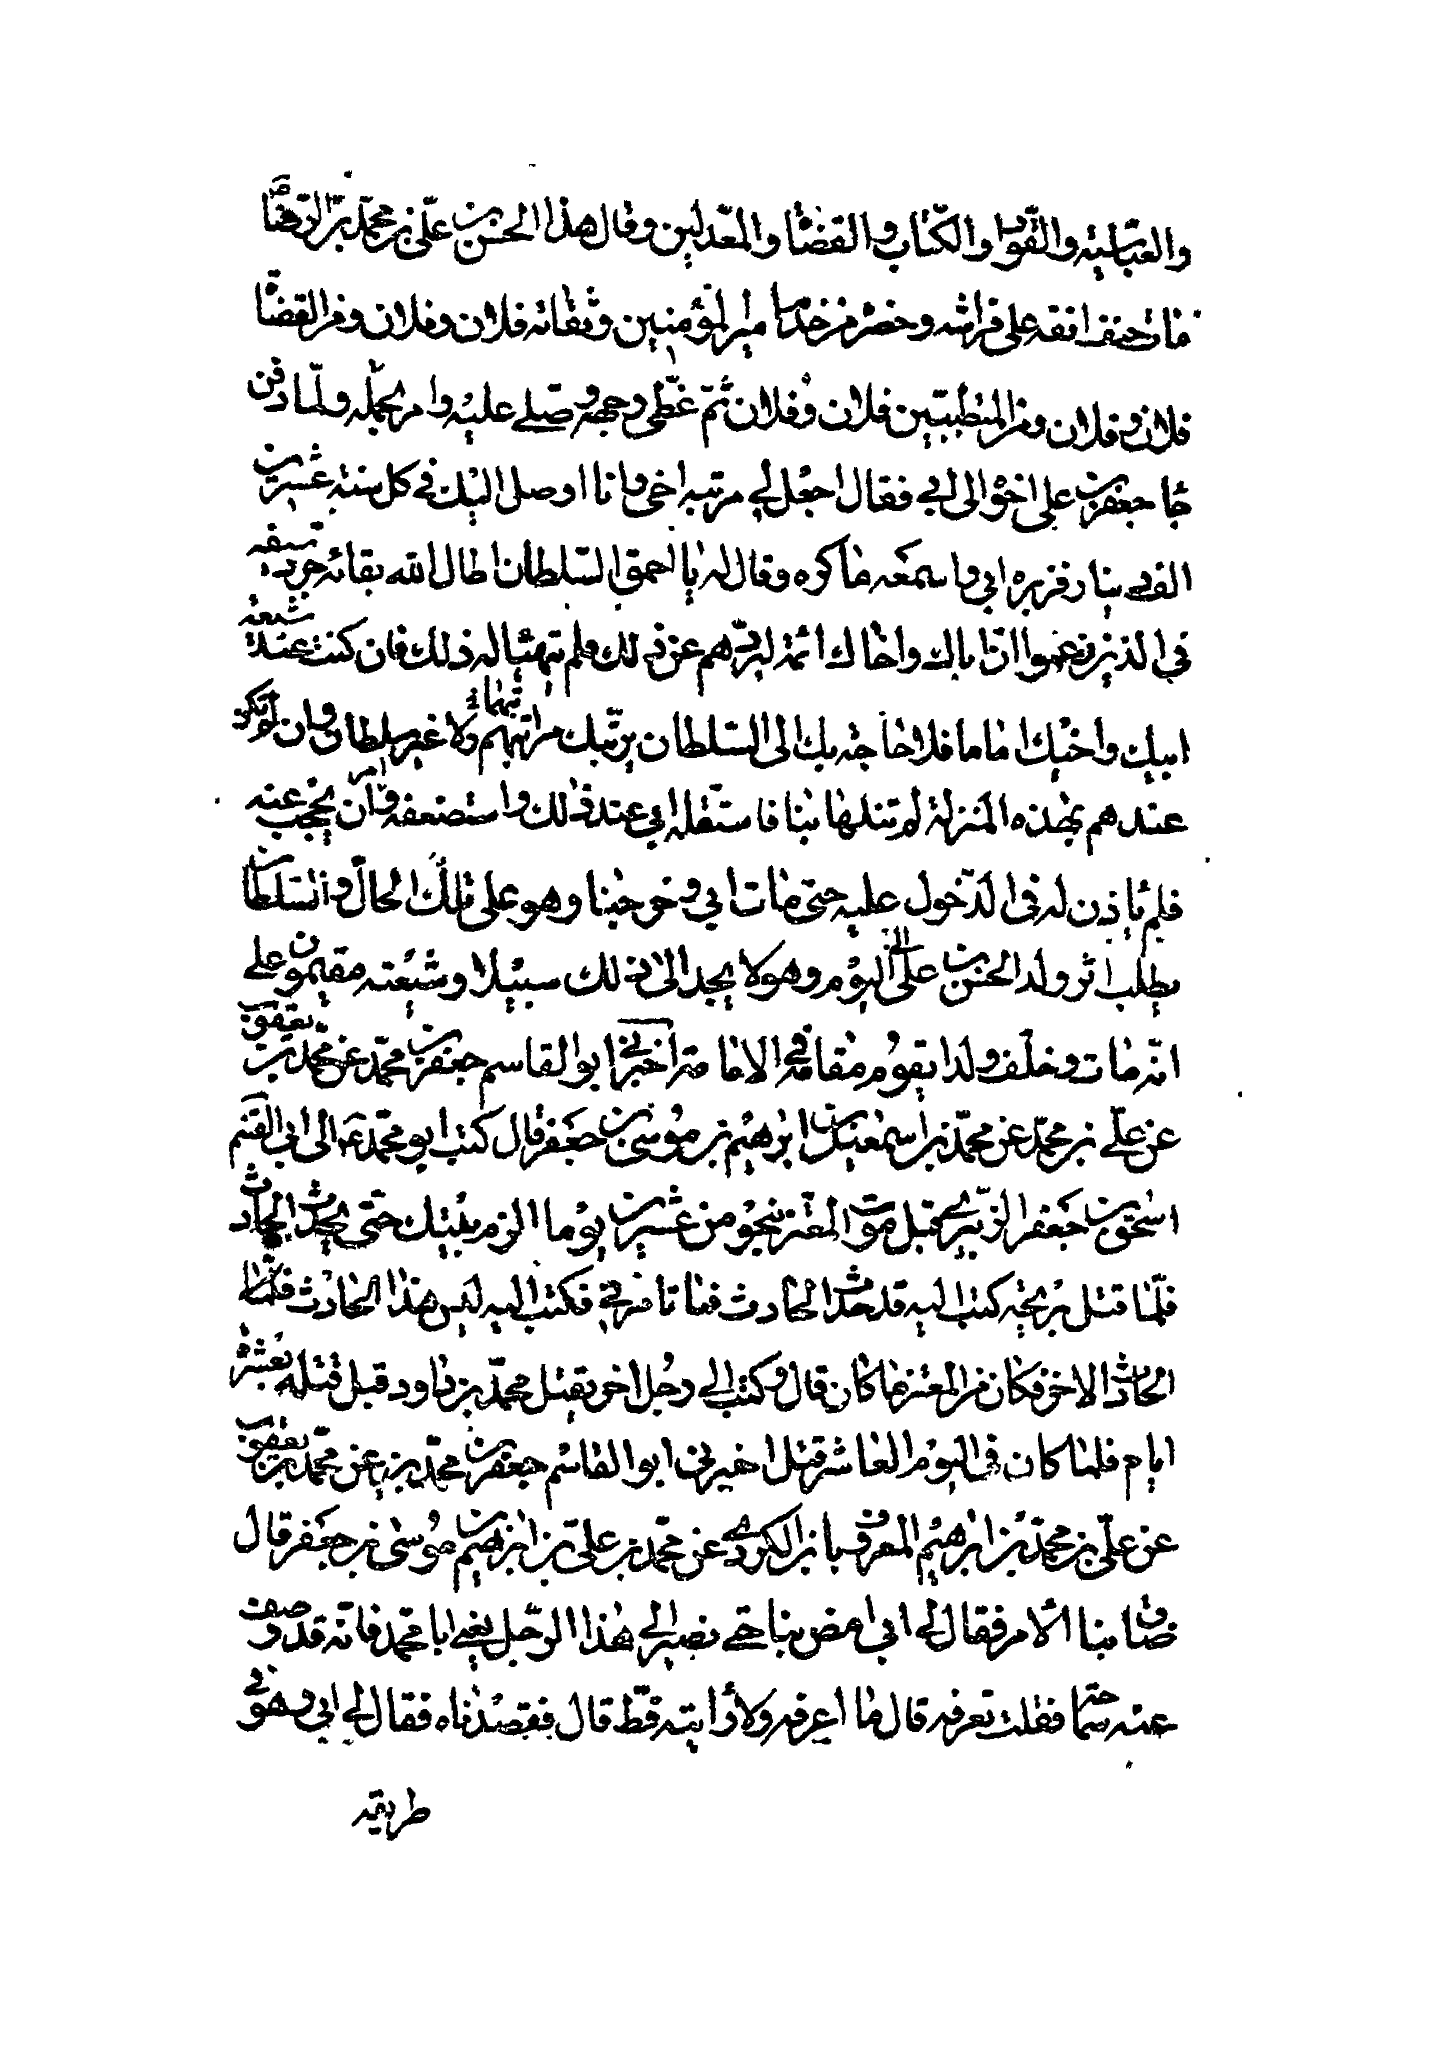 والعباسية والقواد والكتاب والقضاة والمعدلين وقال هذا الحسن بن علي بن محمد بن الرضا
مات حتف انفه على فراشه وحضره من خدم امير المؤمنين وثقاته فلان وفلان ومن القضاة
فلان وفلان ومن المتطببين فلان وفلان ثم غطى وجهه وصلى عليه وامر بحمله ولما دفن
جا جعفر بن علي اخوه الى ابي فقال اجعل لي مرتبه اخي وانا اوصل اليك في كل سنة عشرين
الف دينار فزبره ابي واسمعه ما كره وقال له يا احمق السلطان اطال الله بقائه جرد سيفه
في الذين زعموا ان اباك واخاك ائمة ليردهم عن ذلك فلم يتهيئا له ذلك فان كنت عند شيعة
ابيك واخيك اماما فلا حاجة بك الى السلطان يرتبك مراتبهم ولا غير سلطان وان لم تكن
عندهم بهذه المنزلة لم تنلها بنا فاستقله ابي عند ذلك واستضعفه وامر ان يحجب عنه
فلم ياذن له في الدخول عليه حتى مات ابي وخرجنا وهو على تلك الحال والسلطان
يطلب اثر ولد الحسن بن علي الى اليوم وهو لا يجد الى ذلك سبيلا وشيعته مقيمون على
انه مات وخلف ولدا يقوم مقامه في الامامة اخبرني ابو القاسم جعفر بن محمد عن محمد بن يعقوب
عن علي بن محمد عن محمد بن اسمعيل بن ابرهيم بن موسى بن جعفر قال كتب ابو محمد ع الى ابي القسم
اسحق بن جعفر الزبيري قبل موت المعتز بنحو من عشرين يوما الزم بيتك حتى يحدث الحادث
فلما قتل بريحه كتب اليه قد حدث الحادث فما تامرني فكتب اليه ليس هذا الحادث فلما
الحادث الاخر فكان من المعتز ما كان قال وكتب الى رجل اخر بقتل محمد بن داود قبل قتله بعشرة
ايام فلما كان في اليوم العاشر قتل اخبرني ابو القاسم جعفر بن محمد عن محمد بن يعقوب
عن علي بن محمد بن ابرهيم المعروف بابن الكردي عن محمد بن علي بن ابرهيم بن موسى بن جعفر قال
ضاق بنا الامر فقال لي ابي امض بنا حتى نصير الى هذا الرجل يعني ابا محمد فانه قد وصف
عنه سماحة فقلت تعرفه قال ما اعرفه ولا رايته قط قال فقصدناه فقال لي ابي وهو في
طريقه